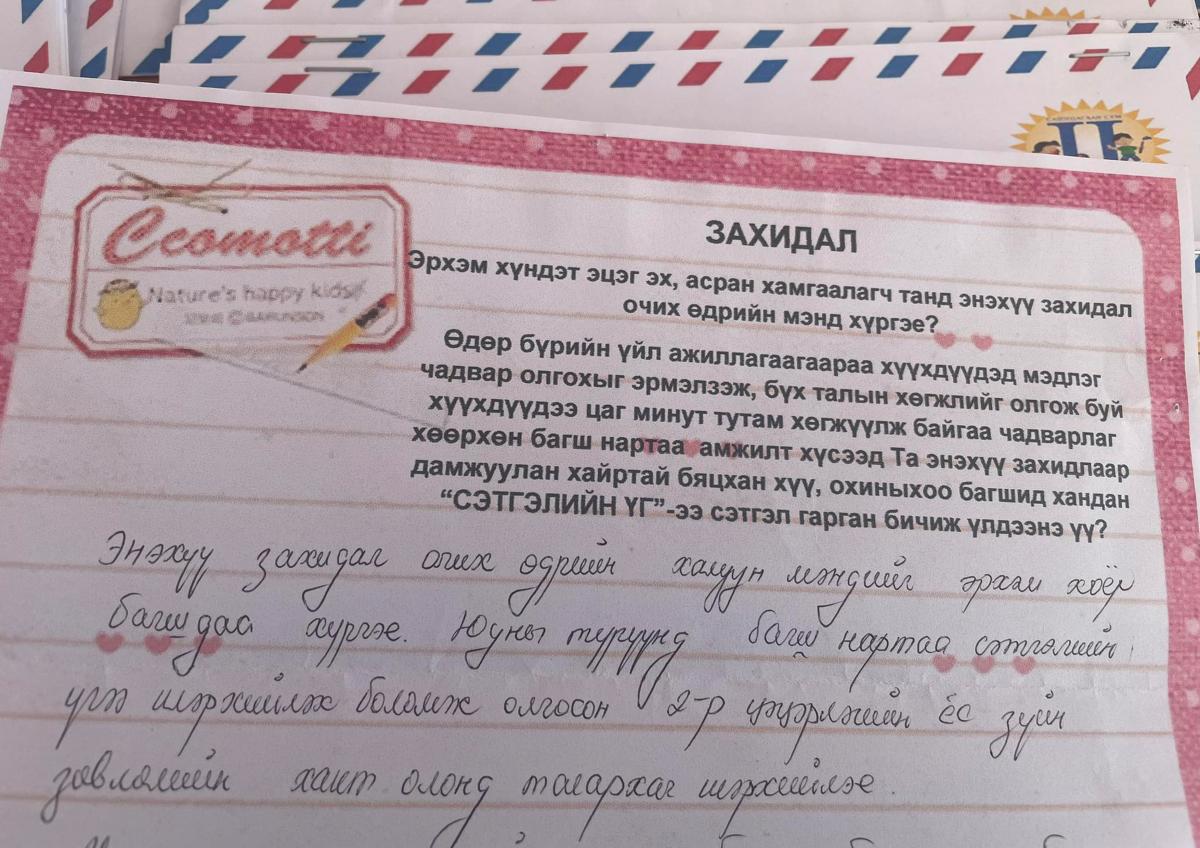 САЙНЦАГААН СУМ
Ccomotti
Nature's happy kids!
ЗАХИДАЛ
Эрхэм хүндэт эцэг эх, асран хамгаалагч танд энэхүү захидал
очих өдрийн мэнд хүргэе?
Өдөр бүрийн үйл ажиллагаагаараа хүүхдүүдэд мэдлэг
чадвар олгохыг эрмэлзэж, бүх талын хөгжлийг олгож буй
хүүхдүүдээ цаг минут тутам хөгжүүлж байгаа чадварлаг
хөөрхөн багш нартаа амжилт хүсээд Та энэхүү захидлаар
дамжуулан хайртай бяцхан хүү, охиныхоо багшид хандан
“СЭТГЭЛИЙН ҮГ”-ээ сэтгэл гарган бичиж үлдээнэ үү?
Энэхүү захидал очих өдрийн халуун мэндийг эрхэм хоёр
багшдаа хүргэе. Юуны түрүүнд багш нартаа сэтгэлийн
үгээ илэрхийлэх боломж олгосон 2-р цэцэрлэгийн ёс зүйн
зөвлөлийн хамт олонд талархал илэрхийлье.